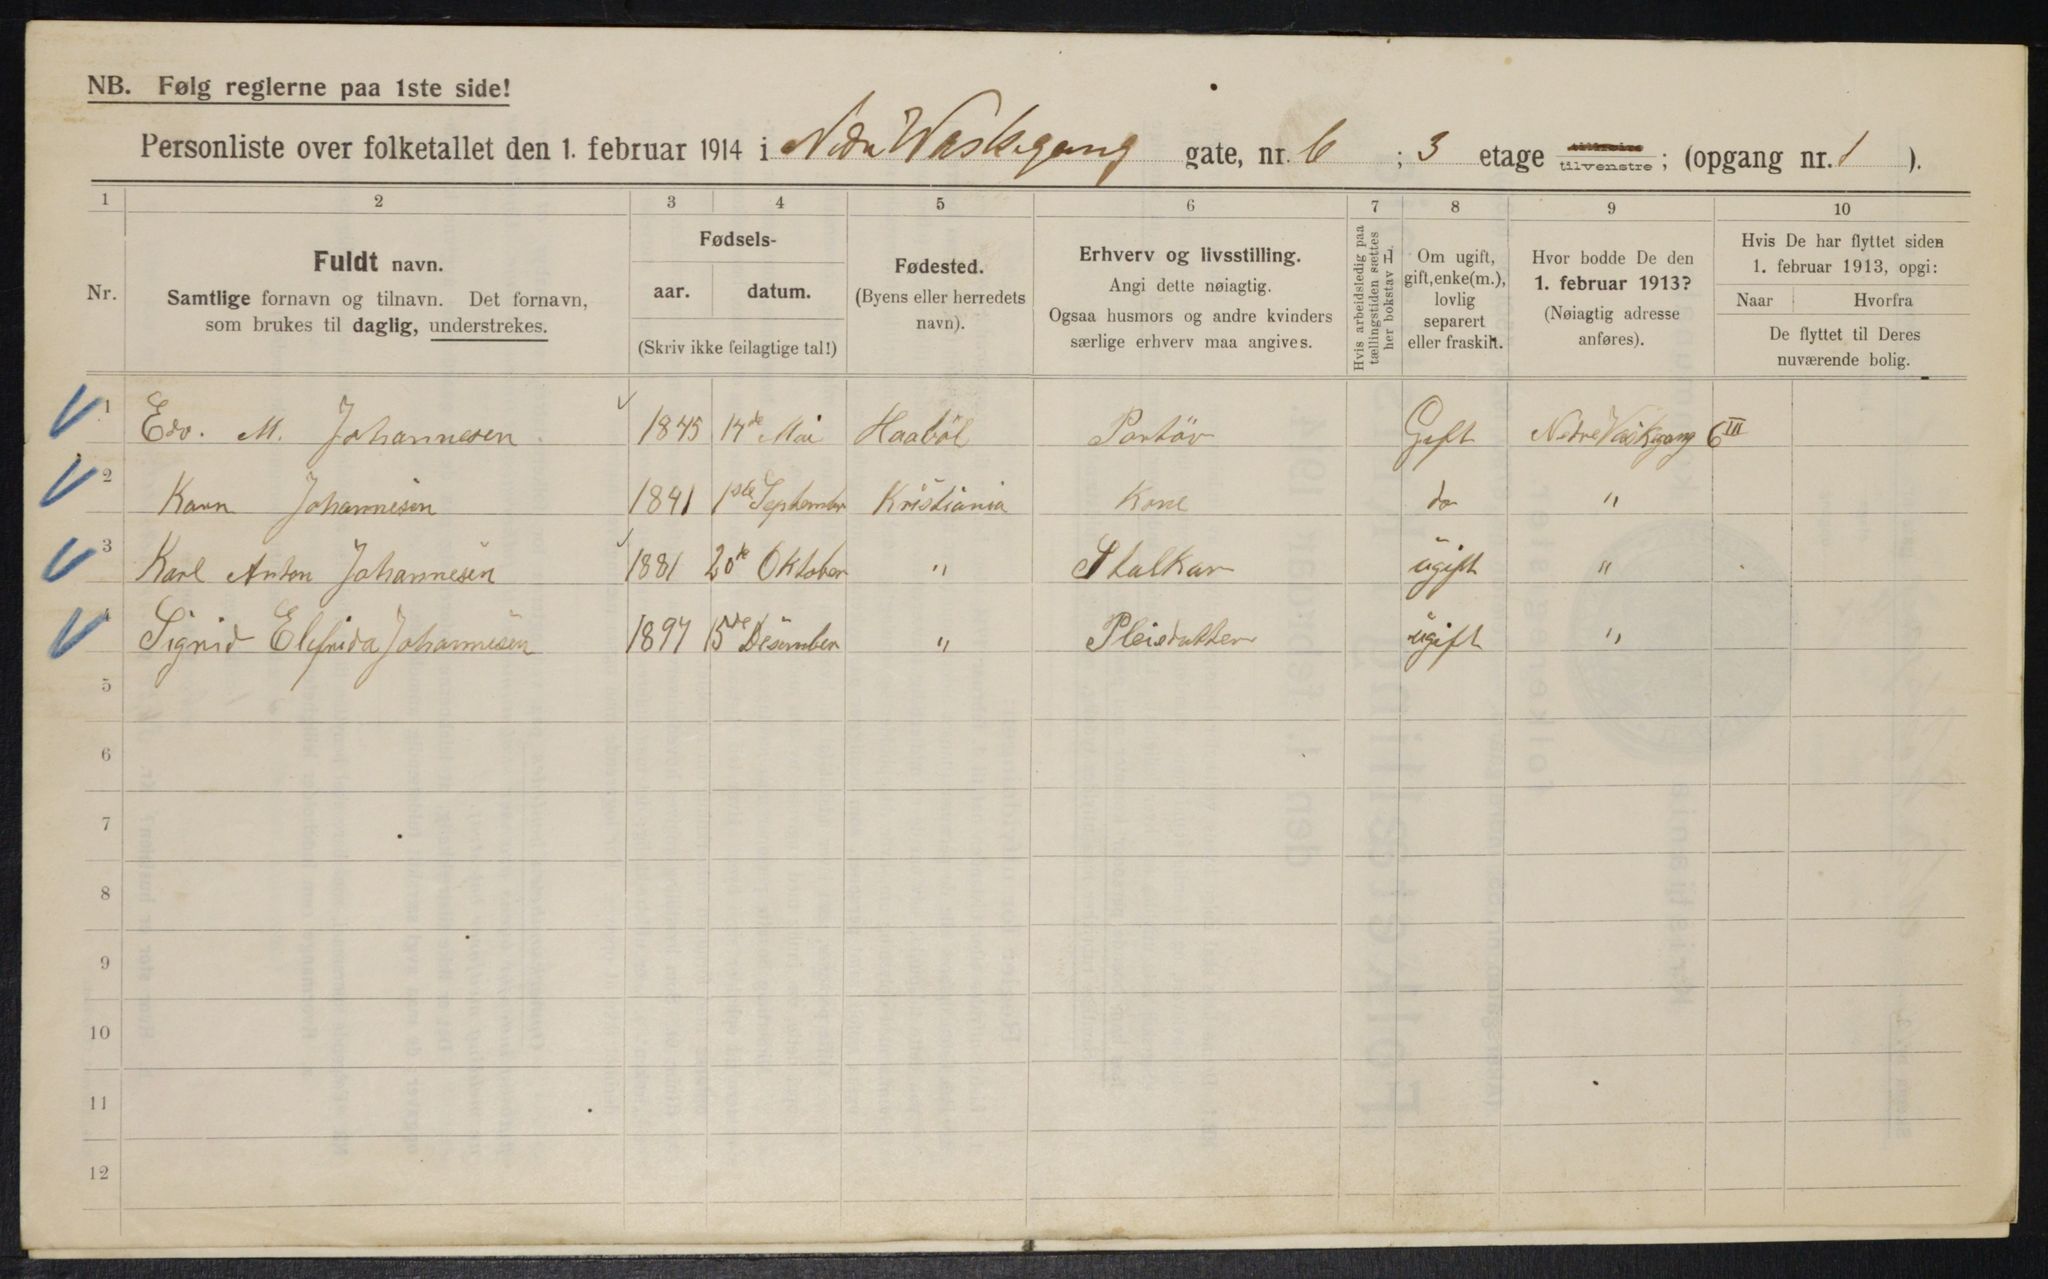 NB. Følg reglerne paa 1ste side!
Personliste over folketallet den 1. februar 1914 i Nedre Waskegang gate, nr. 6 ; 3 etage tilvenstre; (opgang nr. 1 ).
1 2 3 4 5 6 7 8 9 10
Nr.
Fuldt navn.
Samtlige fornavn og tilnavn. Det fornavn,
som brukes til daglig, understrekes.
Fødsels-
aar. datum.
(Skriv ikke feilagtige tal!)
Fødested.
(Byens eller herredets
navn).
Erhverv og livsstilling.
Angi dette nøiagtig.
Ogsaa husmors og andre kvinders
særlige erhverv maa angives.
Hvis arbeidsledig paa
tællingstiden sættes
her bokstav L.
Om ugift,
gift, enke(m.),
lovlig
separert
eller fraskilt.
Hvor bodde De den
1. februar 1913?
(Nøiagtig adresse
anføres).
Hvis De har flyttet siden
1. februar 1913, opgi:
Naar Hvorfra
De flyttet til Deres
nuværende bolig.
1 Edv. M. Johannesen 1845 17de Mai Haabøl Portör Gift Nedre Vaskegang 6 III
2 Karn Johannesen 1841 1ste September Kristiania Kone do "
3 Karl Anton Johannesen 1881 20de Oktober " Stalkar ugift "
4 Sigrid Elefrida Johannesen 1897 15de Desember " Pleiedatter ugift "
5
6
7
8
9
10
11
12